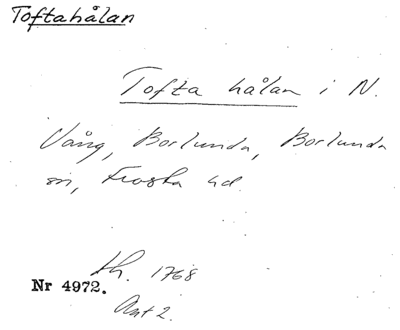 Toftahålan
Tofta hålan i N.
Vång, Borlunda, Borlunda
sn, Frosta hd
Lh. 1768
Nr 4972.
Akt 2.